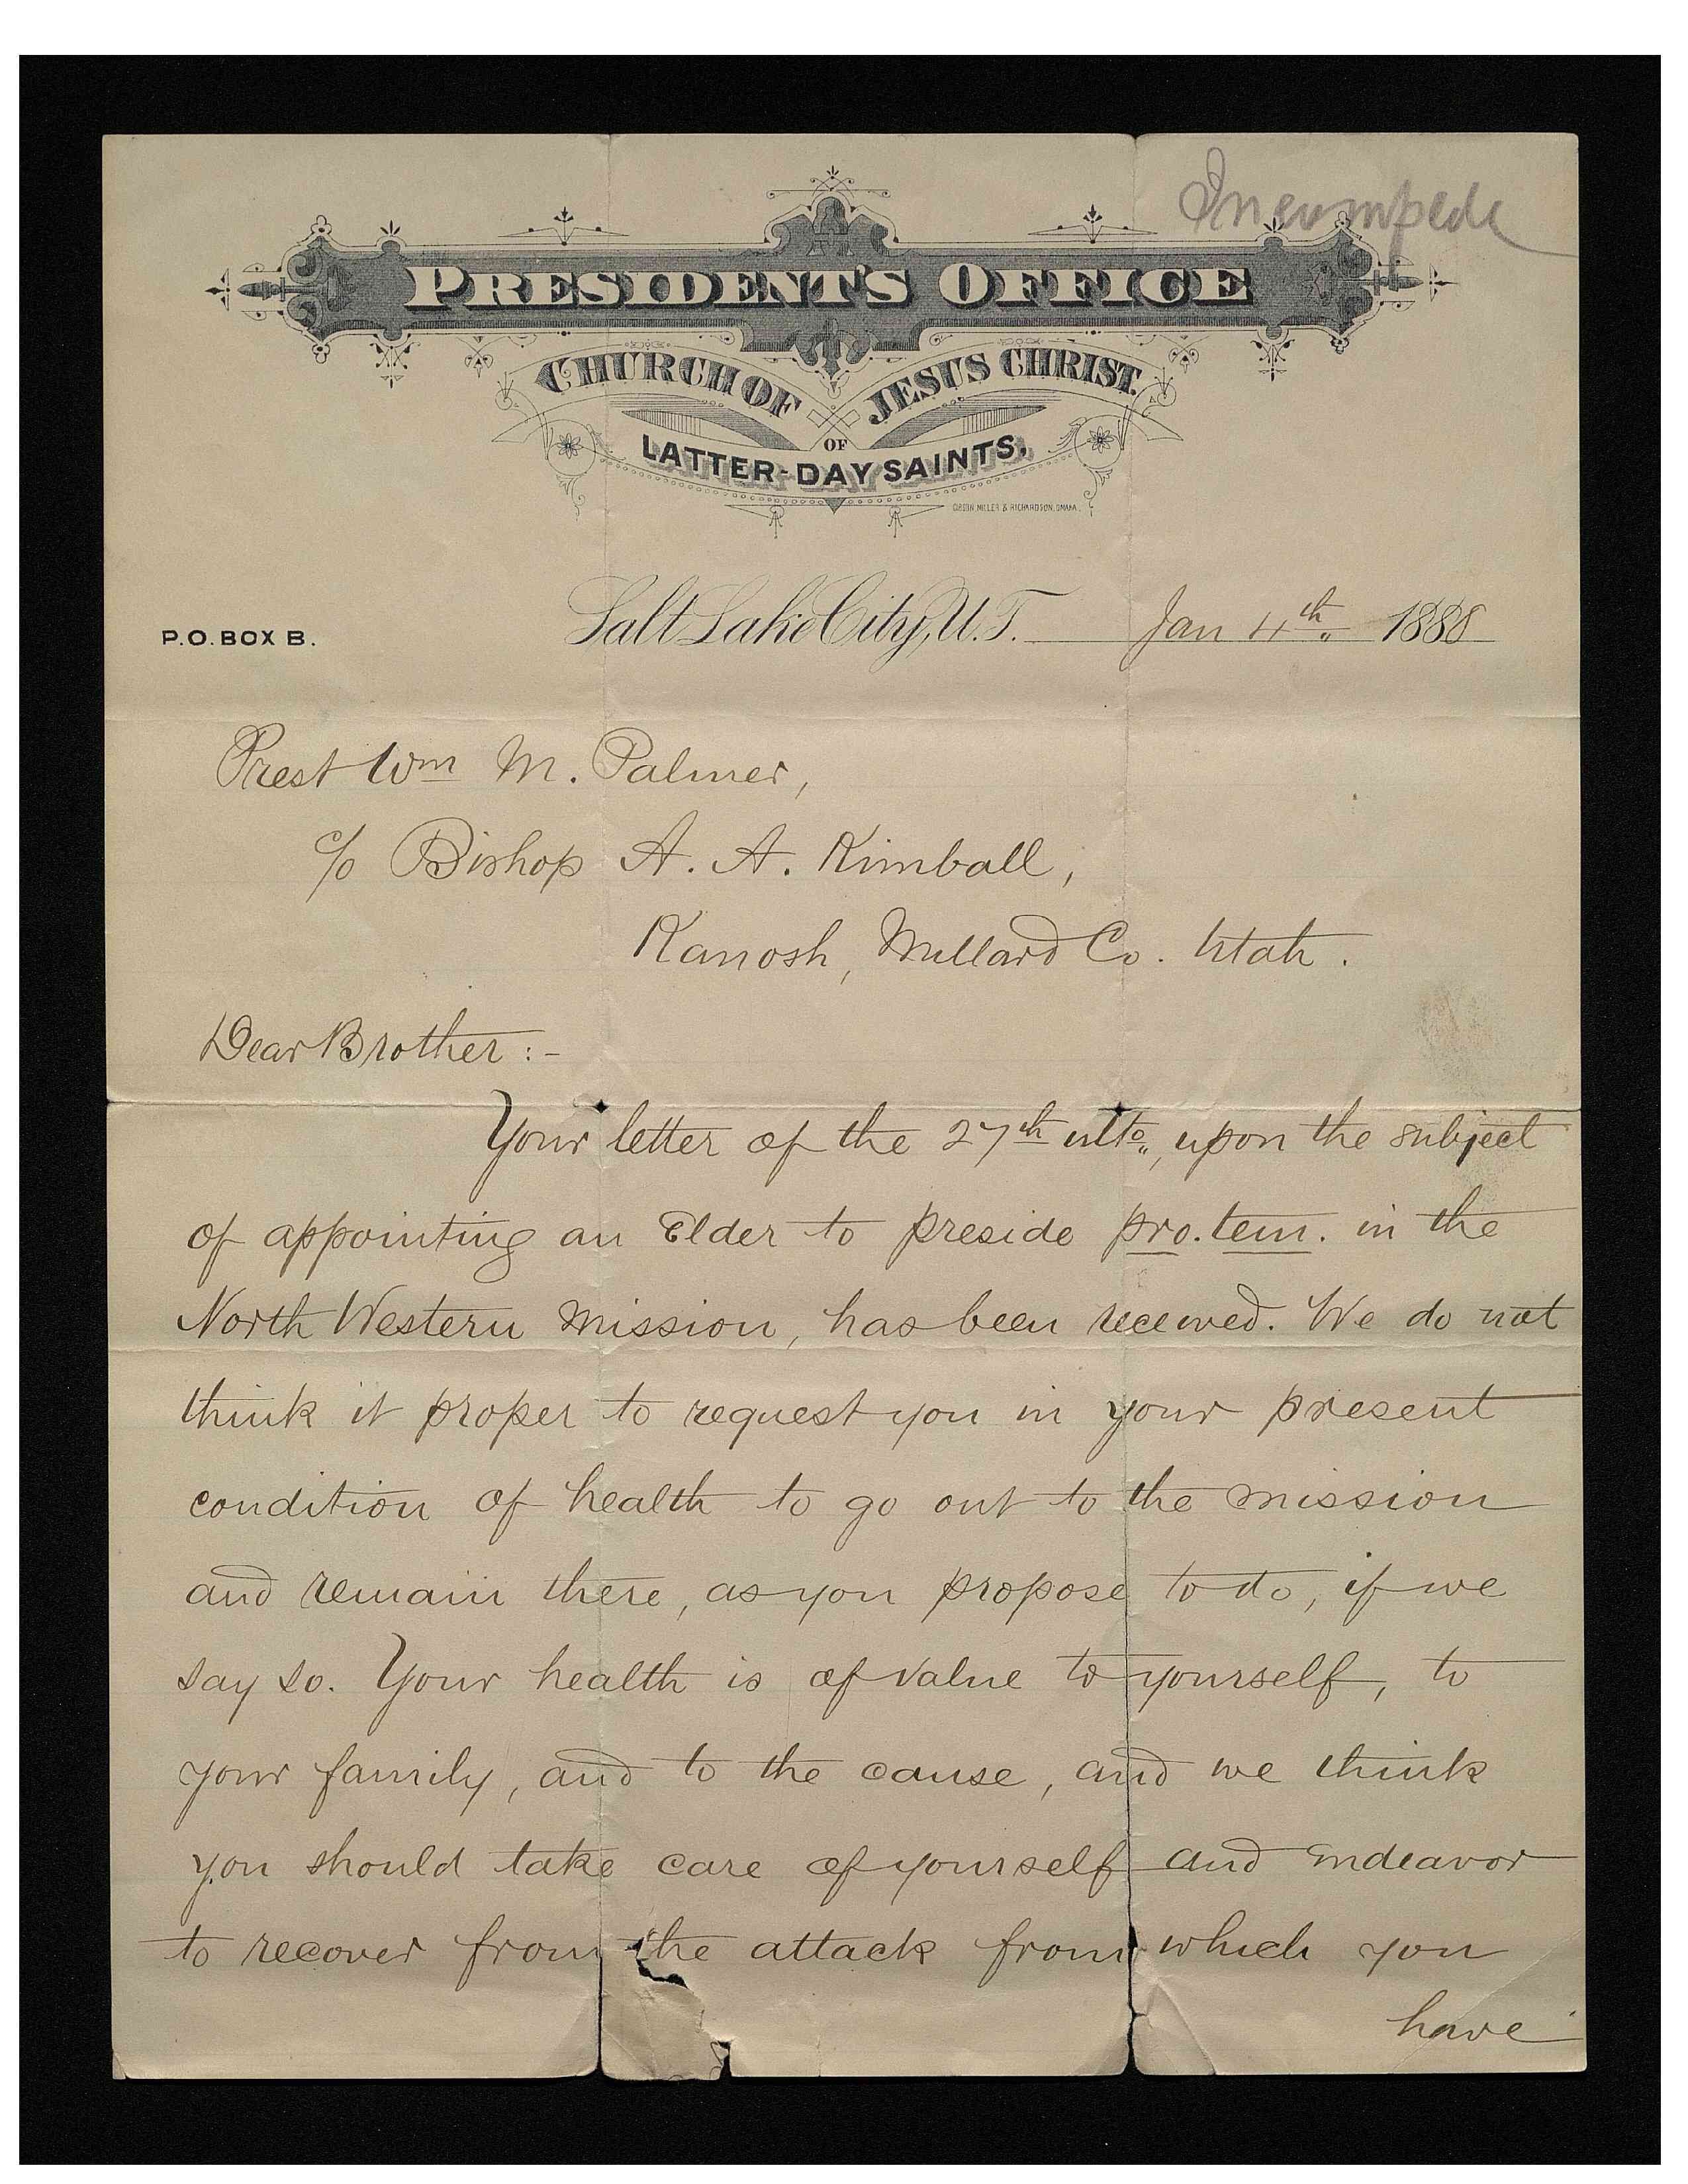 Incompede
PRESIDENT'S OFFICE
CHURCH OF JESUS CHRIST
OF
LATTER-DAY SAINTS.
GIBSON MILLER & RICHARDSON, OMAHA.
P.O. BOX B.
Salt Lake City, U.T. Jan 4th 1888
Prest Wm M. Palmer,
c/o Bishop A. A. Kimball,
Kanosh, Millard Co. Utah.
Dear Brother:-
Your letter of the 27th ulto, upon the subject
of appointing an Elder to preside pro. tem. in the
North Western Mission, has been received. We do not
think it proper to request you in your present
condition of health to go out to the mission
and remain there, as you propose to do, if we
say so. Your health is of value to yourself, to
your family, and to the cause, and we think
you should take care of yourself and endeavor
to recover from the attack from which you
have